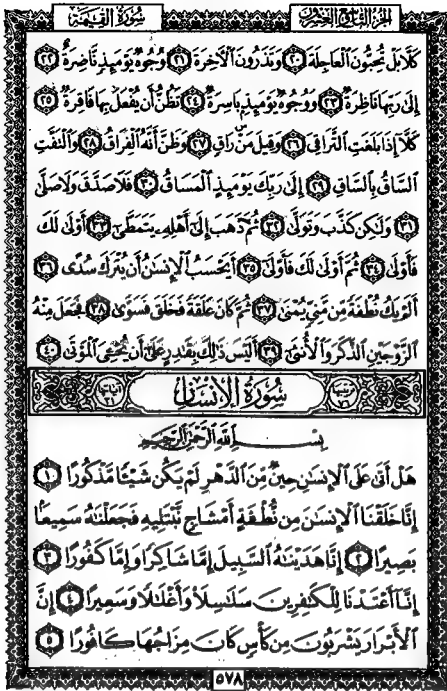 سُورَةُ القِيَامَةِ الجُزءُ التَّاسِعُ وَالعِشْرُونَ
كَلَّا بَلْ تُحِبُّونَ الْعَاجِلَةَ ٢٠ وَتَذَرُونَ الْآخِرَةَ ٢١ وُجُوهٌ يَوْمَئِذٍ نَّاضِرَةٌ ٢٢
إِلَىٰ رَبِّهَا نَاظِرَةٌ ٢٣ وَوُجُوهٌ يَوْمَئِذٍ بَاسِرَةٌ ٢٤ تَظُنُّ أَن يُفْعَلَ بِهَا فَاقِرَةٌ ٢٥
كَلَّا إِذَا بَلَغَتِ التَّرَاقِيَ ٢٦ وَقِيلَ مَنْ رَاقٍ ٢٧ وَظَنَّ أَنَّهُ الْفِرَاقُ ٢٨ وَالْتَفَّتِ
السَّاقُ بِالسَّاقِ ٢٩ إِلَىٰ رَبِّكَ يَوْمَئِذٍ الْمَسَاقُ ٣٠ فَلَا صَدَّقَ وَلَا صَلَّىٰ
٣١ وَلَٰكِن كَذَّبَ وَتَوَلَّىٰ ٣٢ ثُمَّ ذَهَبَ إِلَىٰ أَهْلِهِ يَتَمَطَّىٰ ٣٣ أَوْلَىٰ لَكَ
فَأَوْلَىٰ ٣٤ ثُمَّ أَوْلَىٰ لَكَ فَأَوْلَىٰ ٣٥ أَيَحْسَبُ الْإِنسَٰنُ أَن يُتْرَكَ سُدًى ٣٦
أَلَمْ يَكُ نُطْفَةً مِّن مَّنِيٍّ يُمْنَىٰ ٣٧ ثُمَّ كَانَ عَلَقَةً فَخَلَقَ فَسَوَّىٰ ٣٨ فَجَعَلَ مِنْهُ
الزَّوْجَيْنِ الذَّكَرَ وَالْأُنثَىٰ ٣٩ أَلَيْسَ ذَٰلِكَ بِقَٰدِرٍ عَلَىٰ أَن يُحْيِيَ الْمَوْتَىٰ ٤٠
سُورَةُ الْإِنسَان
بِسْمِ اللَّهِ الرَّحْمَٰنِ الرَّحِيمِ
هَلْ أَتَىٰ عَلَى الْإِنسَٰنِ حِينٌ مِّنَ الدَّهْرِ لَمْ يَكُن شَيْئًا مَّذْكُورًا ١
إِنَّا خَلَقْنَا الْإِنسَٰنَ مِن نُّطْفَةٍ أَمْشَاجٍ نَّبْتَلِيهِ فَجَعَلْنَٰهُ سَمِيعًا
بَصِيرًا ٢ إِنَّا هَدَيْنَٰهُ السَّبِيلَ إِمَّا شَاكِرًا وَإِمَّا كَفُورًا ٣
إِنَّا أَعْتَدْنَا لِلْكَٰفِرِينَ سَلَٰسِلَا۟ وَأَغْلَٰلًا وَسَعِيرًا ٤ إِنَّ
الْأَبْرَارَ يَشْرَبُونَ مِن كَأْسٍ كَانَ مِزَاجُهَا كَافُورًا ٥
٥٧٨